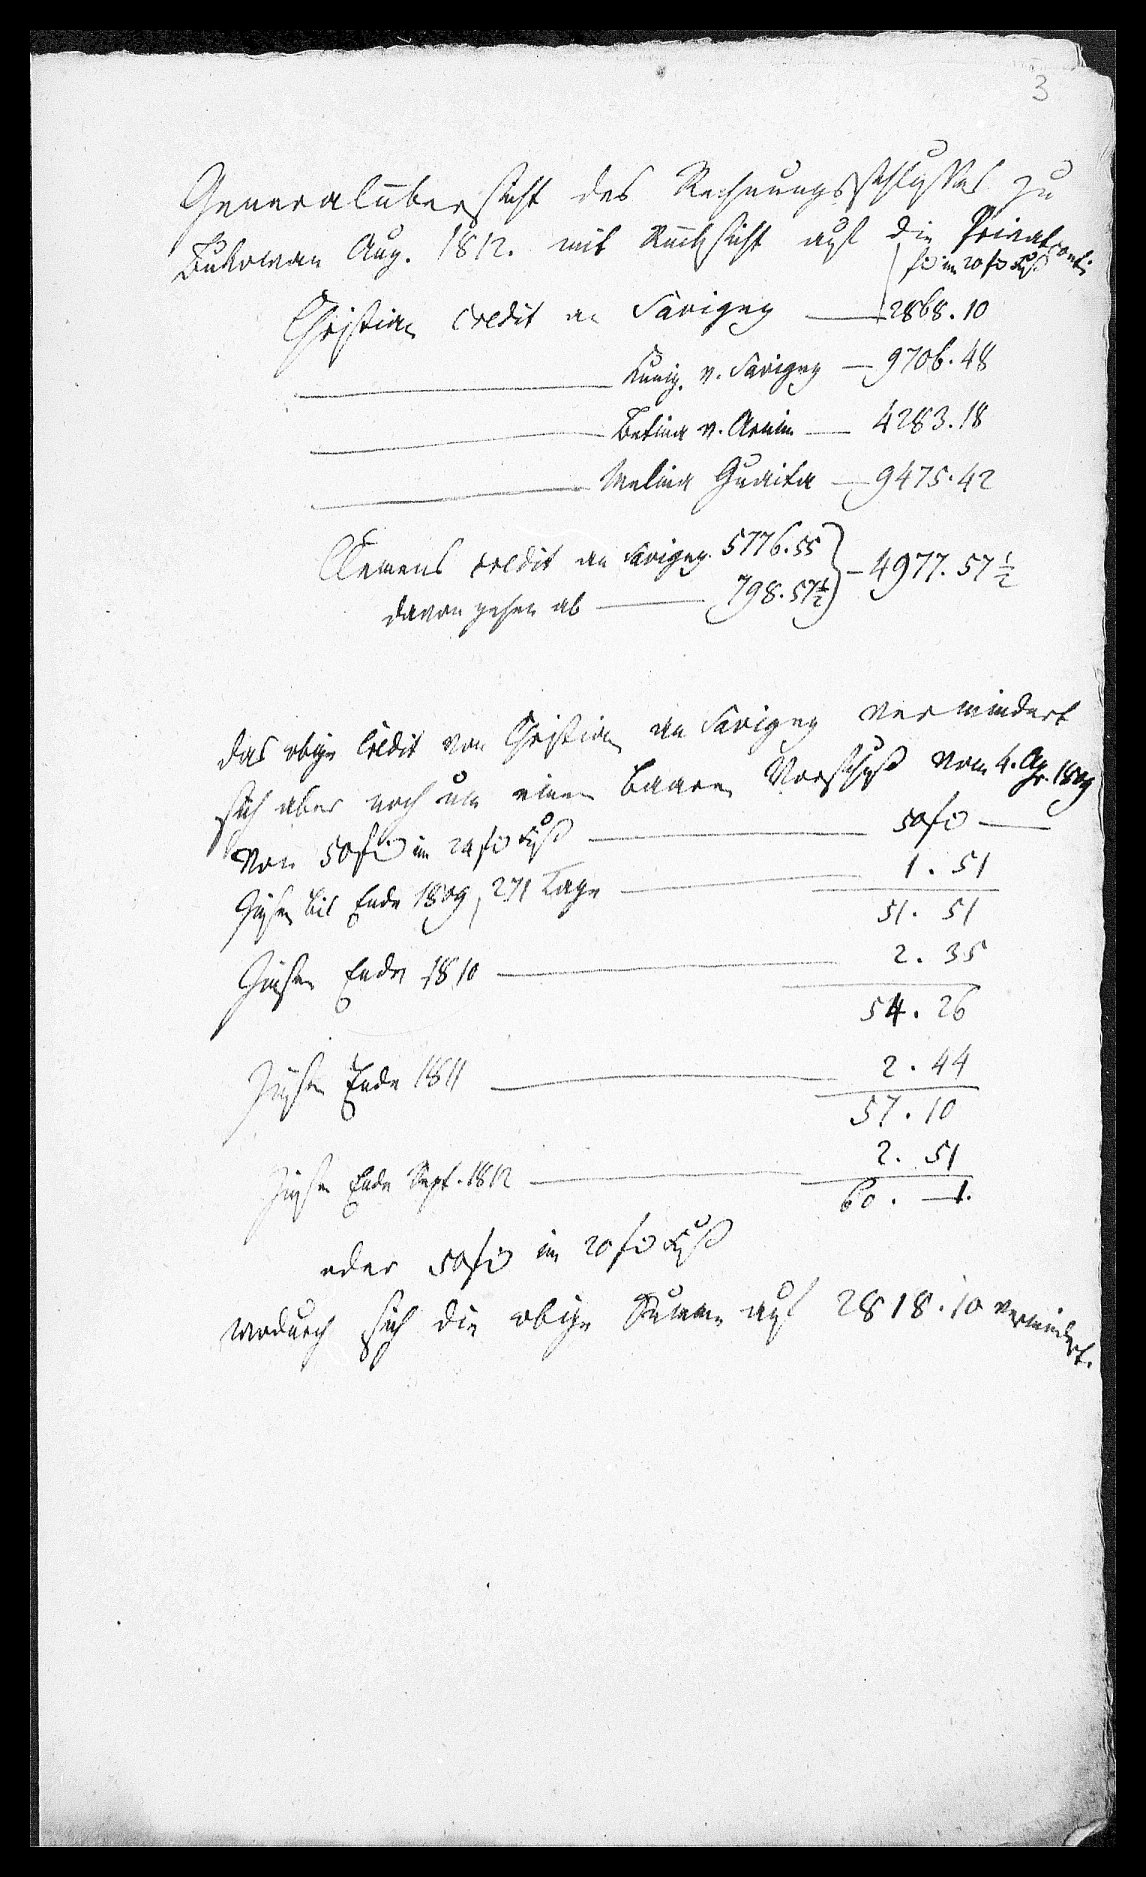 3
Generalübersicht des Rechnungsschlusses zu
Bukowan Aug. 1812. mit Rücksicht auf die Privatconti
fl im 20 fl Fuß
Christian credit an Savigny — 2868.10
— Kunig. v. Savigny — 9706.48
— Betina v. Arnim — 4283.18
— Melina Guaita — 9475.42
Clemens credit an Savigny 5776.55
davon gehen ab — 798.57½ } — 4977.57½
das obige Credit von Christian an Savigny vermindert
sich aber noch um einen baaren Vorschuß vom 4. Apr. 1809
von 50 fl im 24 fl Fuß — 50 fl —
Zinsen bis Ende 1809, 271 Tage — 1.51
51.51
Zinsen Ende 1810 — 2.35
54.26
Zinsen Ende 1811 — 2.44
57.10
Zinsen Ende Sept. 1812 — 2.51
60.—1.
oder 50 fl im 20 fl Fuß
wodurch sich die obige Summe auf 2818.10 vermindert.